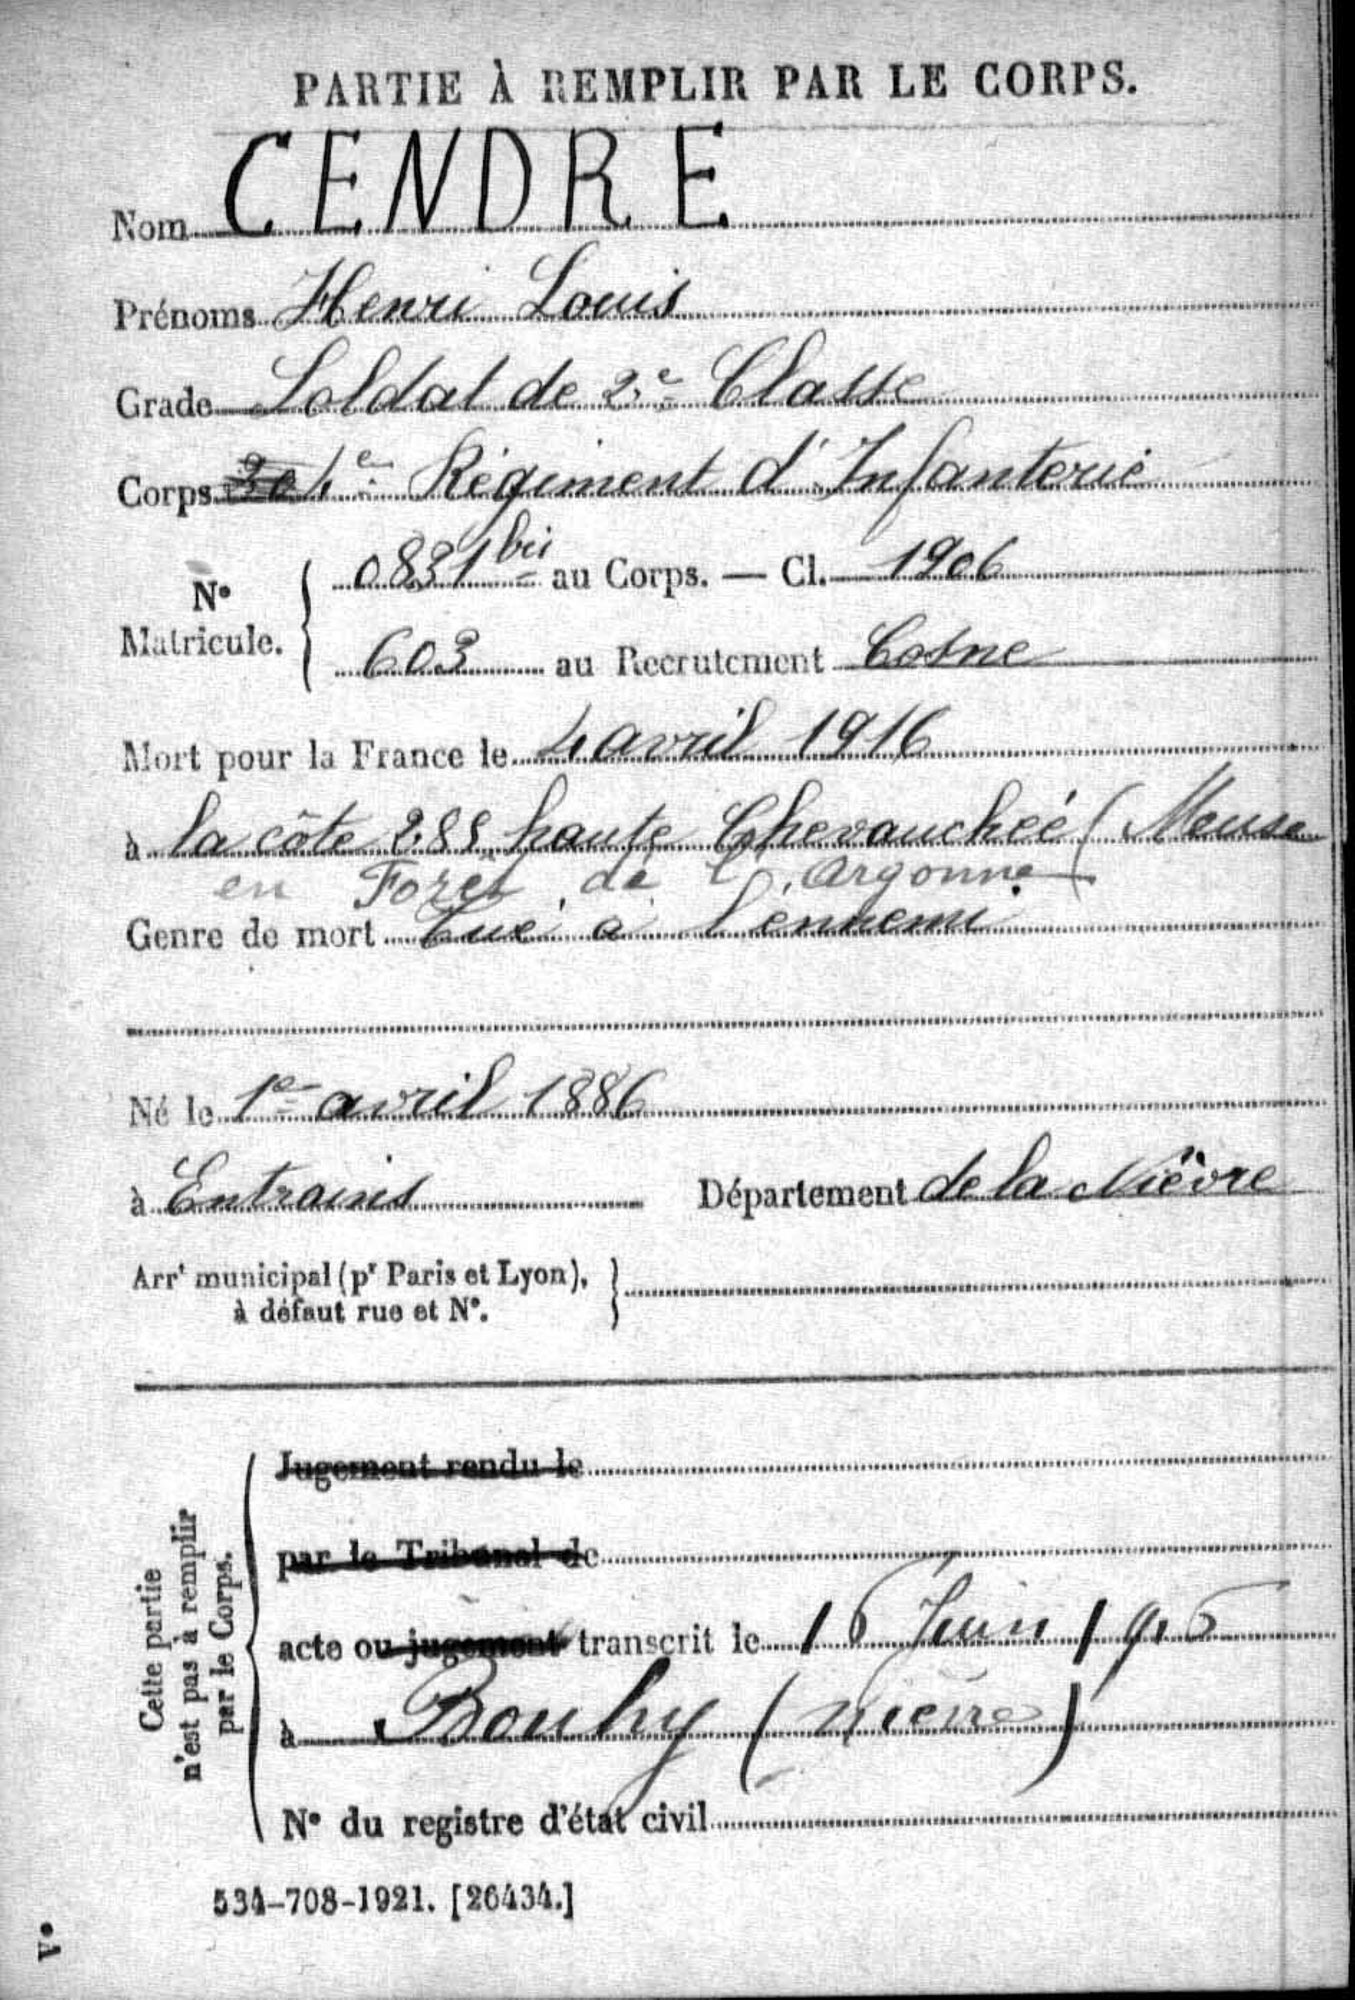 PARTIE À REMPLIR PAR LE CORPS.
Nom CENDRE
Prénoms Henri Louis
Grade Soldat de 2e Classe
Corps 4e Régiment d'Infanterie
N° Matricule. 0831 bis au Corps. — Cl. 1906
603 au Recrutement Cosne
Mort pour la France le 4 avril 1916
à la côte 285 haute Chevauchée (Meuse
en Forêt de l'Argonne
Genre de mort Tué à l'ennemi
Né le 1er avril 1886
à Entrains Département de la Nièvre
Arrt municipal (pr Paris et Lyon),
à défaut rue et N°.
Cette partie
n'est pas à remplir
par le Corps.
Jugement rendu le
par le Tribunal de
acte ou jugement transcrit le 16 Juin 1916
à Bouhy (Nièvre)
N° du registre d'état civil
534-708-1921. [26434.]
V°